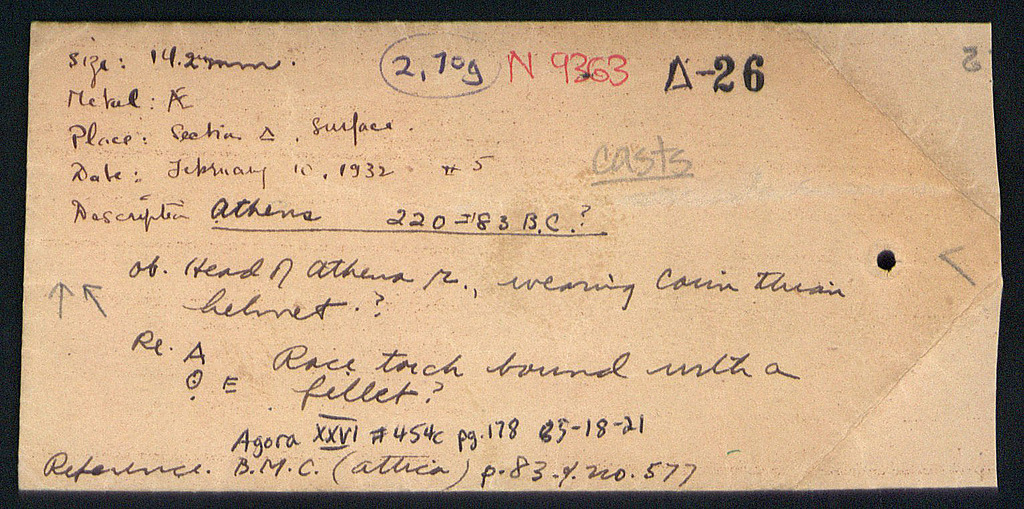 Size: 14.2mm. 2,70g N 9363 Δ-26
Metal: Æ
Place: Section Δ. Surface.
casts
Date: February 10, 1932 #5
Description Athens 220-83 B.C.?
ob. Head of Athena r., wearing Corinthian
helmet.?
Re. A Race torch bound with a
Θ E fillet?
Agora XXVI #454c pg.178 -18-21
Reference. B.M.C. (Attica) p.83. no. 577